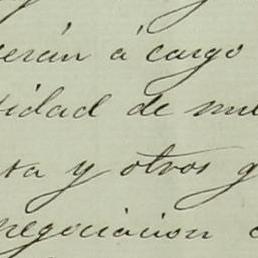 serán á cargo
tidad de mu
sa y otros g
negociacion